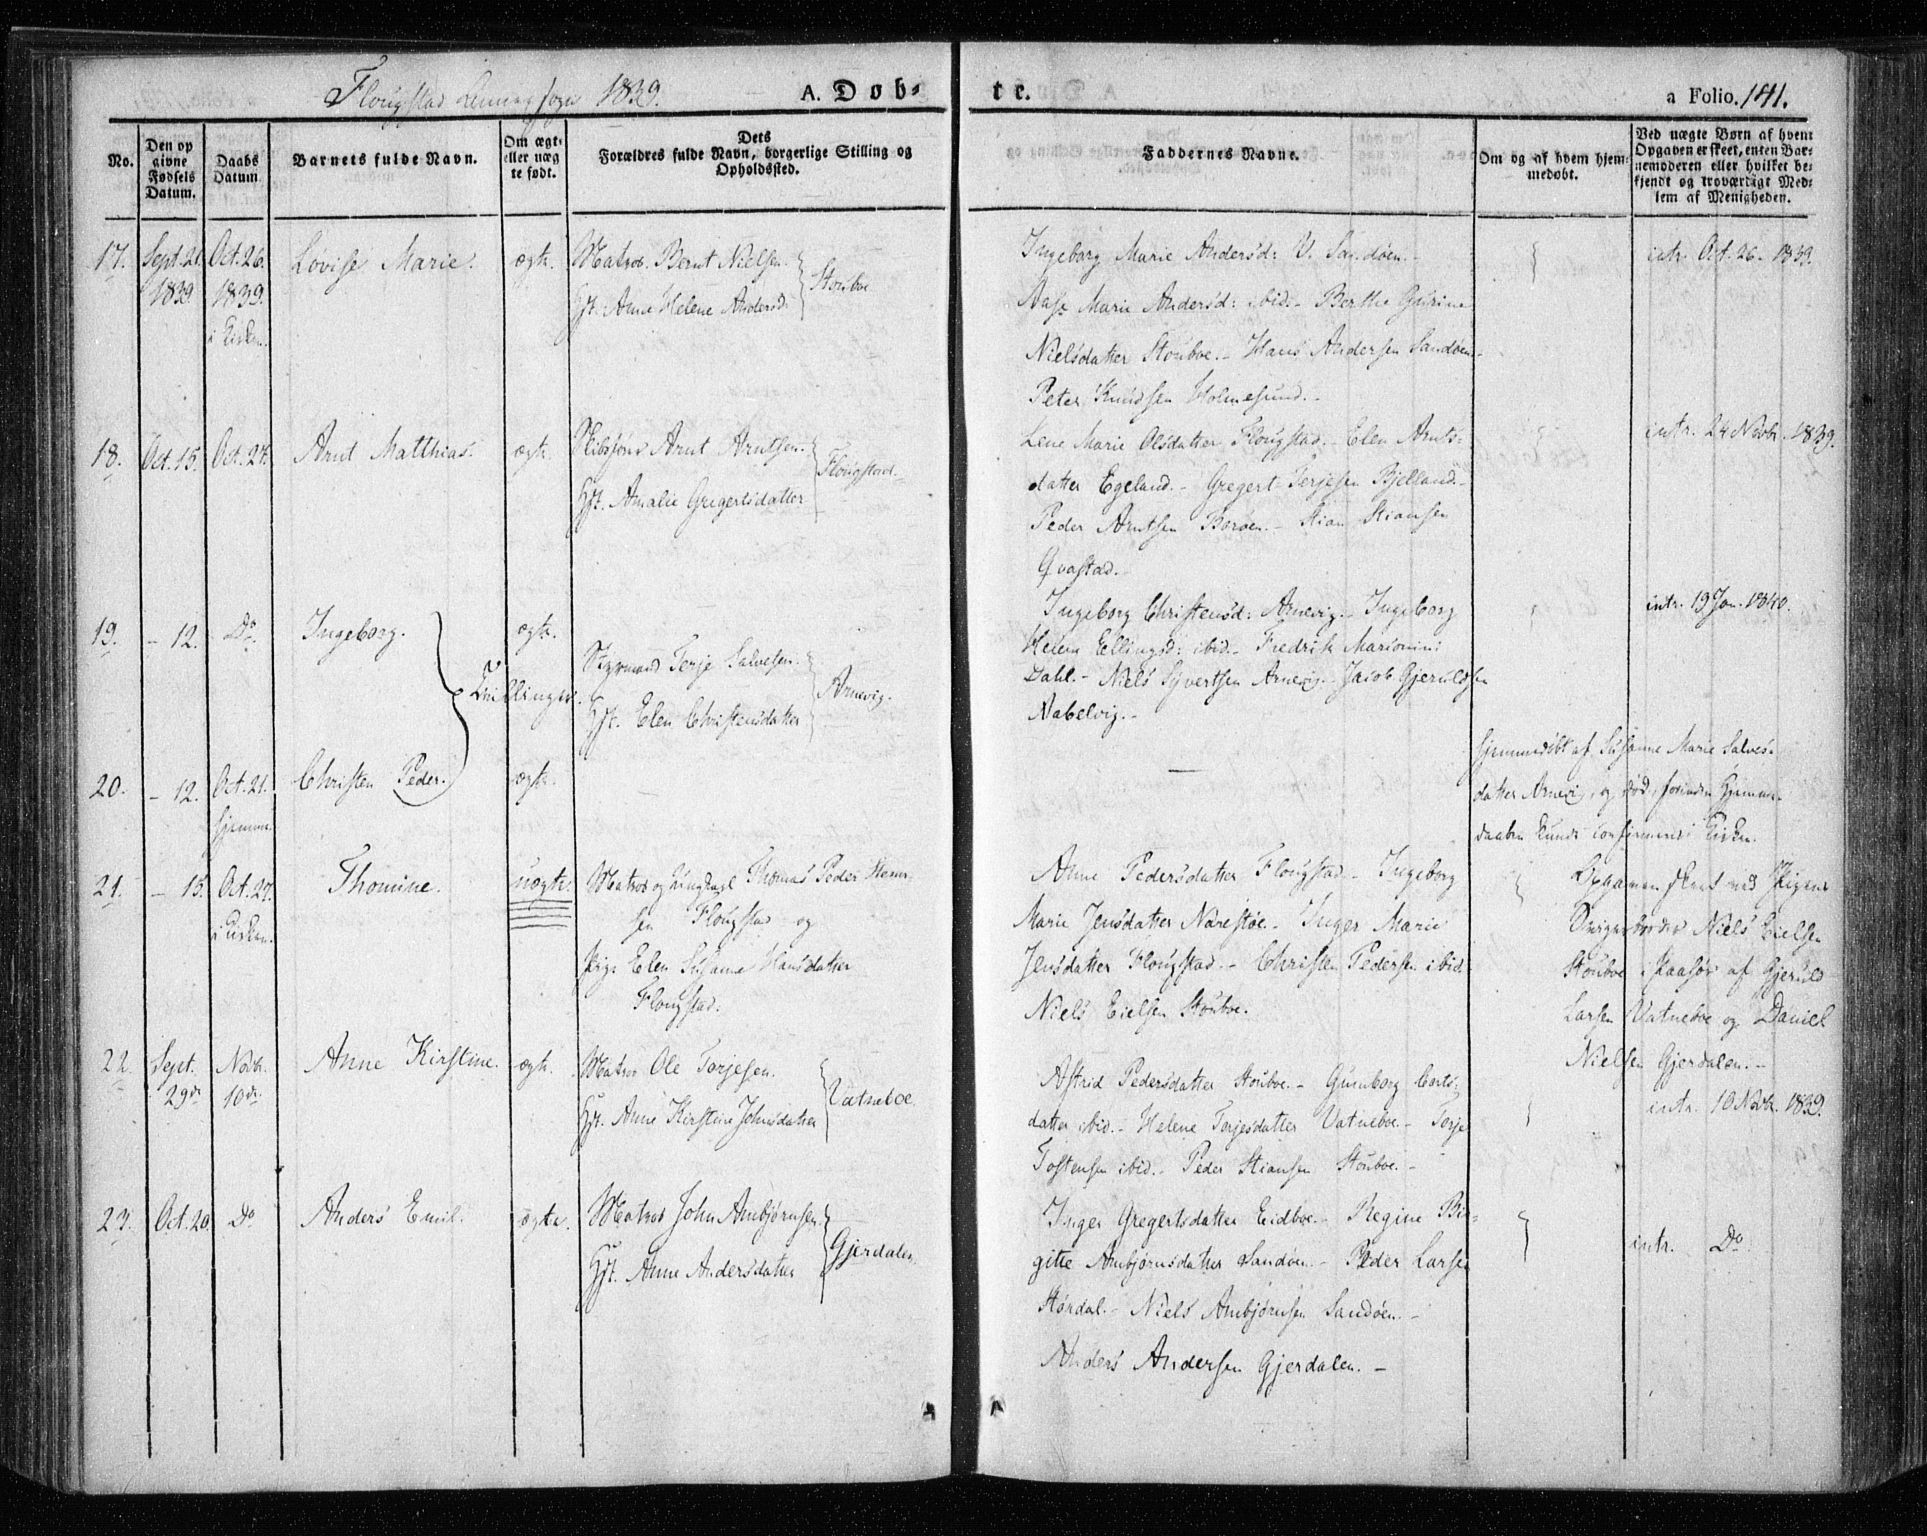 Flougstad 1839. A. Døb- te. a Folio. 141.
No.
Den op
givne
Fødsels
Datum.
Daabs
Datum
Barnets fulde Navn.
Om ægt-
eller uæg
te født.
Dets
Forældres fulde Navn, borgerlige Stilling og
Opholdssted.
Faddernes Navne.
Om og af hvem hjem-
medøbt.
Ved uægte Børn af hvem
Opgaven er skeet, enten Bar-
nemoderen eller hvilket be-
kjendt og troværdigt Med-
lem af Menigheden.
17. Sept. 21. Oct. 26. Lovise Marie. ægte. Matros Bernt Nielsen.
1839 1839. Hst. Anne Helene Andersd: Stouboe
i Kirken.
Ingeborg Marie Andersd: V. Sandøen.- intr. Oct. 26. 1839.
Aase Marie Andersd: ibid.- Berthe Gurine
Nielsdatter Stouboe.- Hans Andersen Sandøen.-
Peter Knudsen Holmesund.-
18. Oct. 15. Oct. 27. Arnt Matthias. ægte. Skibsfører Arnt Arntsen. Flougstad.
Hst. Amalie Gregertsdatter
Lene Marie Olsdatter Flougstad.- Elen Arnts- intr. 24 Novbr. 1839.
datter Egeland.- Gregert Terjesen Bjelland.-
Peder Arntsen Borøen.- Stian Stiansen
Qvastad.-
19. - 12. Do. Ingeborg. ægte.
Tvillinger. Styrmand Terje Salvesen. Arnevig.
Hst. Elen Christensdatter
Ingeborg Christensd: Arnevig.- Ingeborg intr. 19 Jan. 1840.
Helene Ellingsd: ibid.- Fredrik Marionini:
Dahl.- Niels Syvertsen Arnevig.- Jacob Gjeruldsen
Nabelvig.-
20. - 12. Oct. 21. Christen Peder. ægte. —
hjemme.
hjemmedøbt af Susanne Marie Salves-
datter Arnevig, og død, forinden Hjemme-
daaben kunde confirmeres i Kirken.
21. - 15. Oct. 27. Thomine. uægte. Matros og Ungkarl Thomas Peder
i Kirken. sen Flougstad og
Pige Elen Susanne Hansdatter
Flougstad.
Anne Pedersdatter Flougstad.- Ingeborg
Marie Jensdatter Narestøe.- Inger Marie
Jensdatter Flougstad.- Christen Pedersen ibid.
Niels Eielsen Stouboe.
Opgaven skeet ved Pigens
Svigerbroder Niels Eielsen
Stouboe i Paasør af Gjeruld
Larsen Vatneboe og Daniel
Nielsen Gjerdalen.-
22. Sept. Novbr. Anne Kirstine. ægte. Matros Ole Terjesen.
29de 10de. Hst. Anne Kirstine Johnsdatter Vatneboe
Astrid Pedersdatter Stouboe.- Gunborg Berts-
datter ibid.- Helene Terjesdatter Vatneboe.- Terje intr. 10 Novbr. 1839.
Tostensen ibid.- Peder Stiansen Stouboe.-
23. Oct. 20 Do. Anders Emil. ægte. Matros John Ambjørnsen
Hst. Anne Andersdatter Gjerdalen
Inger Gregertsdatter Eidboe.- Regine Bir-
gitte Ambjørnsdatter Sandøen.- Peder Larsen intr. Do.
Stordal.- Niels Ambjørnsen Sandøen.-
Anders Andersen Gjerdalen.-